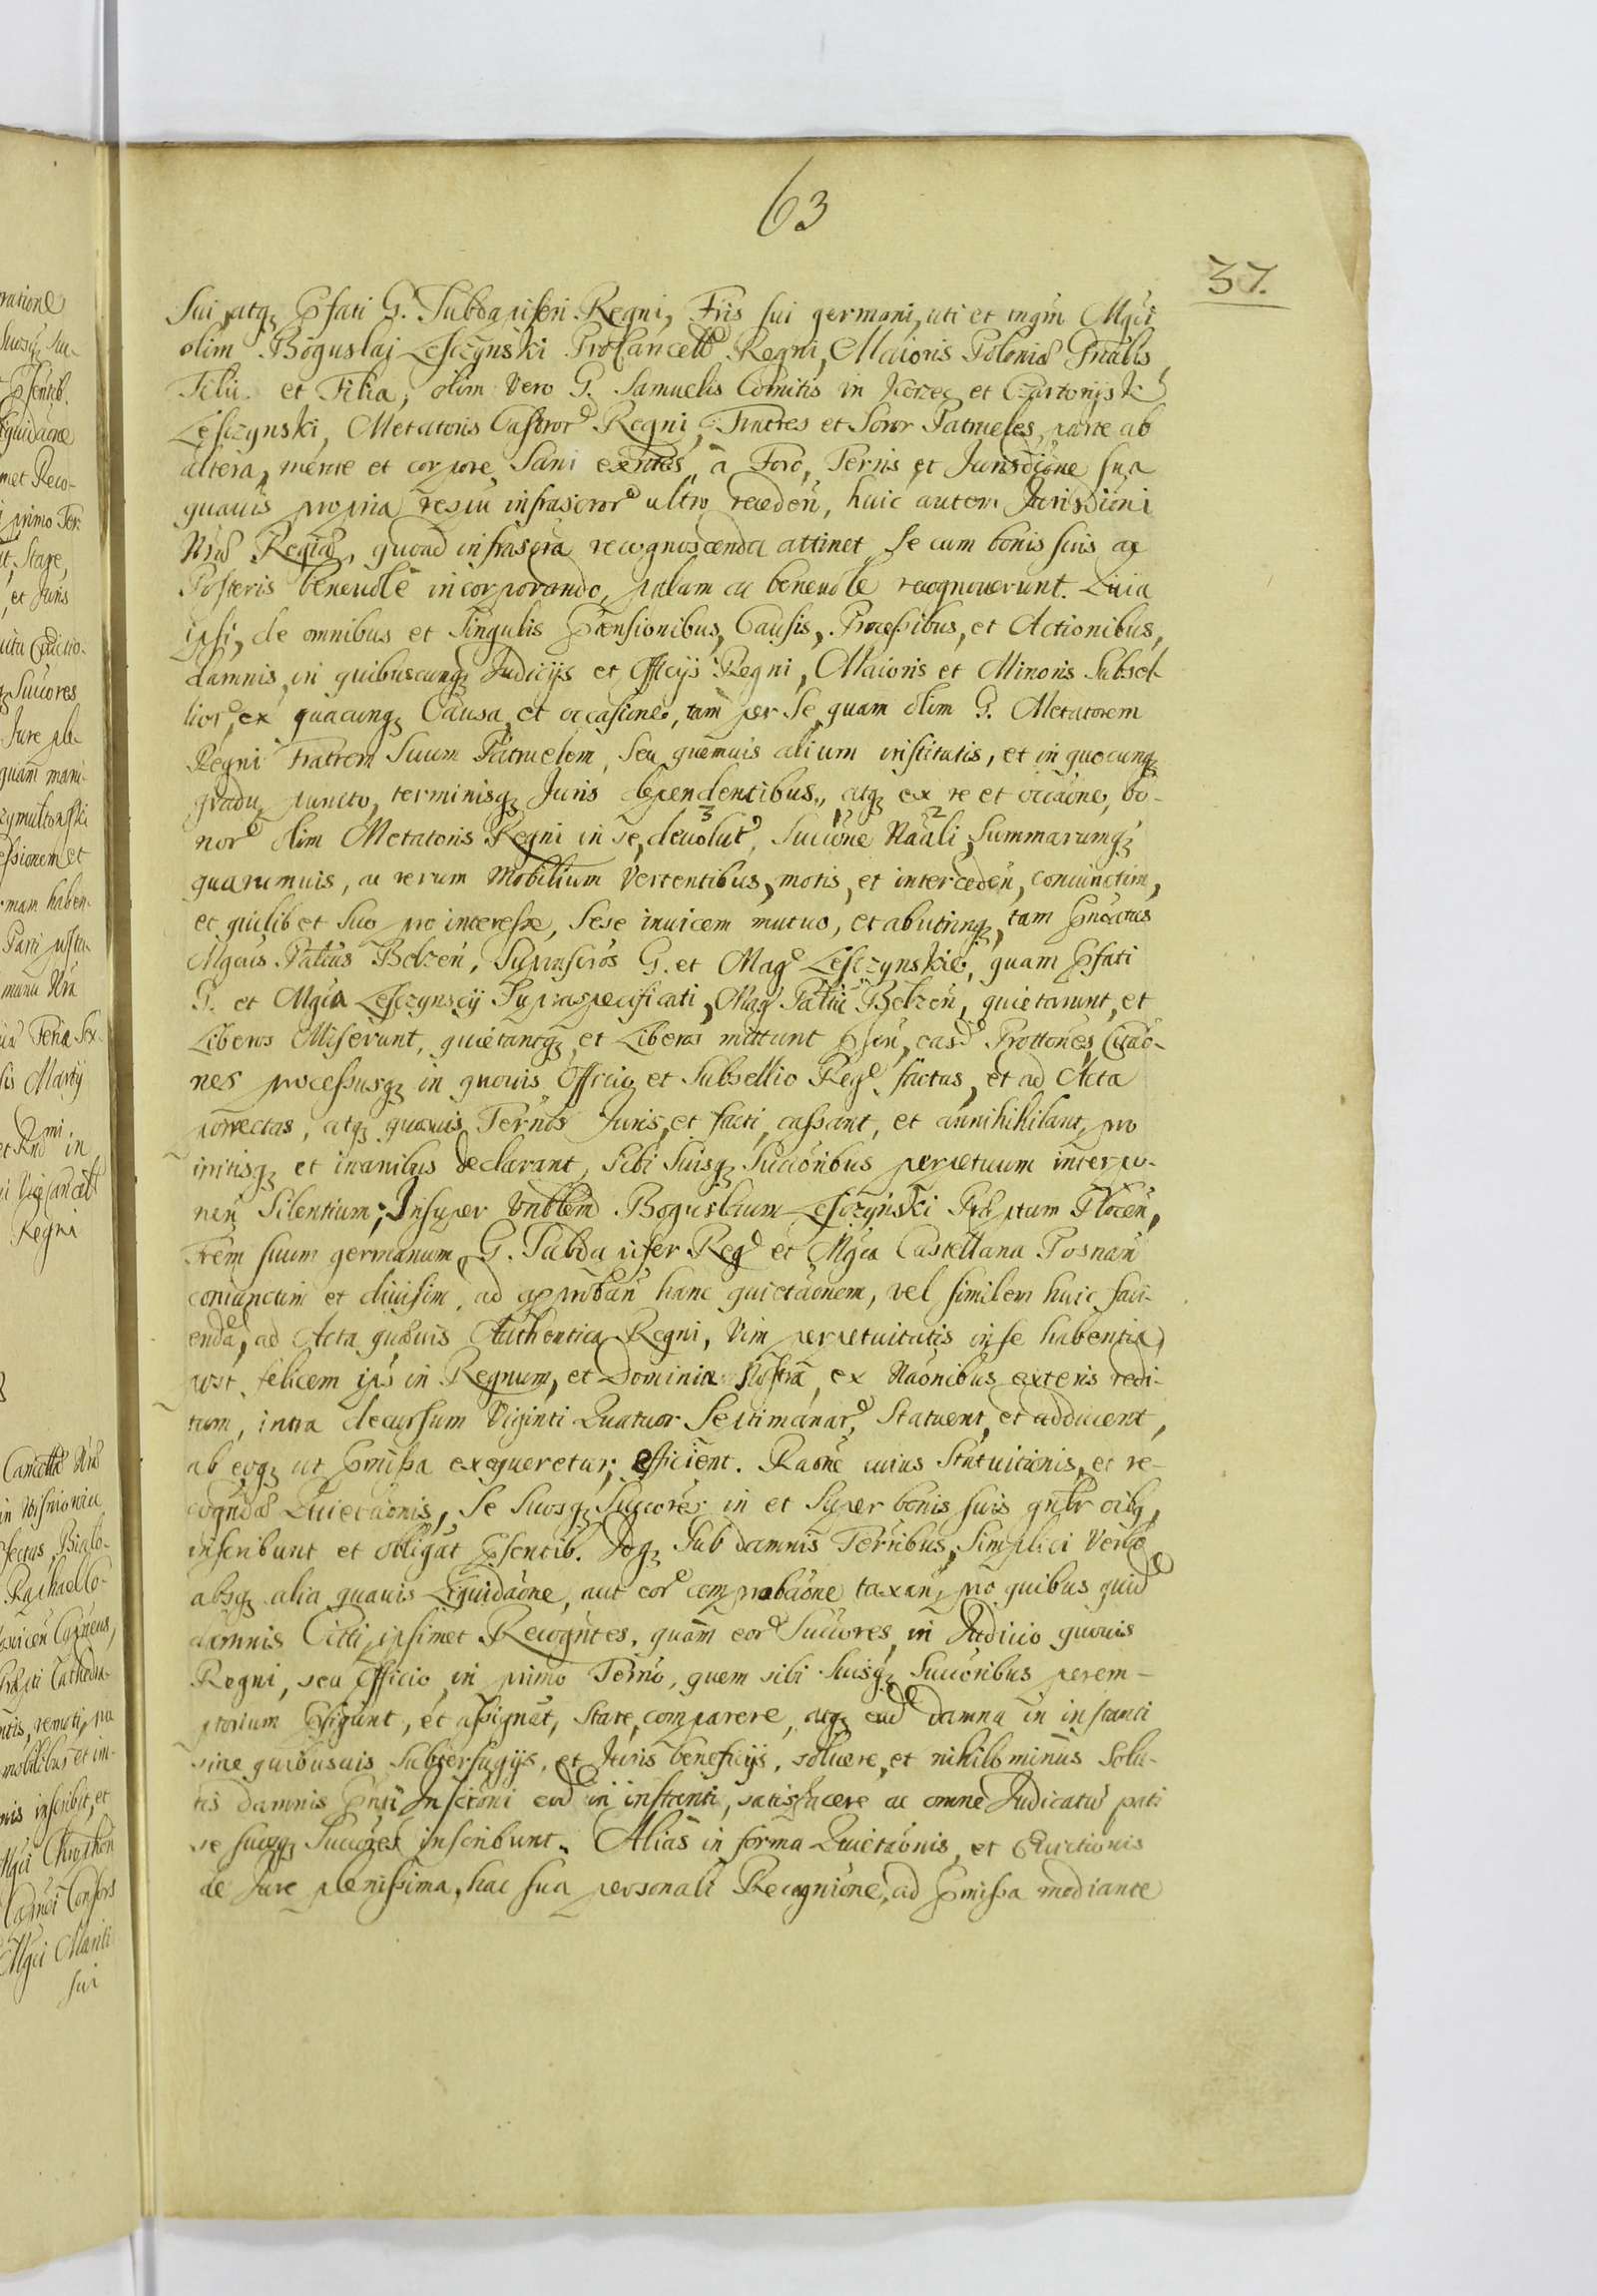 63
37.
Sui, atq; Pfati G. Subdapiferi Regni, Fris sui germani, uti et mgni Mgci
olim Boguslaj Lesczynski ProCancell Regni, Maioris Poloniæ Gnalis
Filii et Filia, olim Vero G. Samuelis Comitis in Korzec et Czartoryjsk
Lesczynski, Metatoris Castror Regni, Fratres et Soror Patrueles, parte ab
altera, mente et corpore Sani exntes, à Foro, Terris et Jurisdicione sua
quavis propria respu infrascror ultro reced̃eñ, huic autem Jurisdicni
Nræ Regiæ, quoad infrascra recognoscenda attinet se cum bonis suis ac
Posteris benevole incorporando, palam ac benevole recognoverunt. Quia
ipsi, de omnibus et Singulis Ptensionibus, Causis, Processibus, et Actionibus,
damnis, in quibuscunq; Judicijs et Officijs Regni, Maioris et Minoris Subsel-
lior, ex quacunq; Causa, et occasione, tam per Se, quam olim G. Metatorem
Regni Fratrem Suum Patruelem, seu quemvis alium institutis, et in quocunq;
gradu, puncto, terminisq; Juris dependentibus, atq; ex re et occaone, bo-
nor olim Metatoris Regni in se, devolut, Succione Naali, Summarumq;
3 1 2
quarumvis, ac rerum Mobilium Vertentibus, motis, et interceden, coniunctim,
et quilibet Suo pro interesse, Sese invicem mutuo, et abutrinq;, tam Pnoatus
Mgcus Palnus Belzen, Suprascros G. et Mag Lesczynskie, quam Pfati
G. et Mgca Lesczynscij Supraspecificati, Mag Palnu Belzen, quietarunt, et
Liberos Miserunt, quietantq; et Liberos mittunt Psen, easd Prottones, Citao-
nes processusq; in quovis Officio et Subsellio Reg factas, et ad Acta
porrectas, atq; quosvis Ternos Juris, et facti, cassant, et annihihilant, pro
irritisq; et inanibus declarant, Sibi Suisq; Succoribus perpetuum interpo-
nen Silentium; Insuper Vnblem Boguslaum Lesczynski Præptum Plocen,
Frem suum germanum, G. Subdapifer Reg et Mgca Castellana Posnan
coniunctim et divisim, ad approban hanc quietaonem, vel similem huic faci-
enda, ad Acta quævis Authentica Regni, Vim perpetuitatis in se habentia,
post felicem ips in Regnum, et Dominia Nostra, ex Naonibus exteris redi-
tum, intra decursum Viginti Quatuor Septimanar, Statuent, et adducent,
ab eoq; ut Pmissa exequeretur; efficient. Raone cuius Statuitionis, et re-
cogndæ Quietaonis, Se Suosq; Succores in et Super bonis suis gnlr oibq,
inscribunt et obligat Psentib. Idq; Sub damnis Terribus, Simplici Verbo
absq; alia quavis Liquidaone, aut eor comprobaone taxan, pro quibus quid
damnis Citti, ipsimet Recogntes, quam eor Succores, in Judicio quovis
Regni, seu Officio, in primo Terno, quem sibi Suisq; Succoribus perem-
ptorium Pfigunt, et assignat, Stare, comparere, atq; ead damna in instanti
sine quibusvis Subterfugijs, et Juris beneficijs, solvere, et nihilominus Solu-
tis damnis Pnti Inscroni eod in instanti, satisfacere ac omne Judicatu pati
se suosq; Succores inscribunt. Alias in forma Quietaonis, et Evictionis
de Jure plenissima, hac sua personali Recognione, ad Pmissa mediante